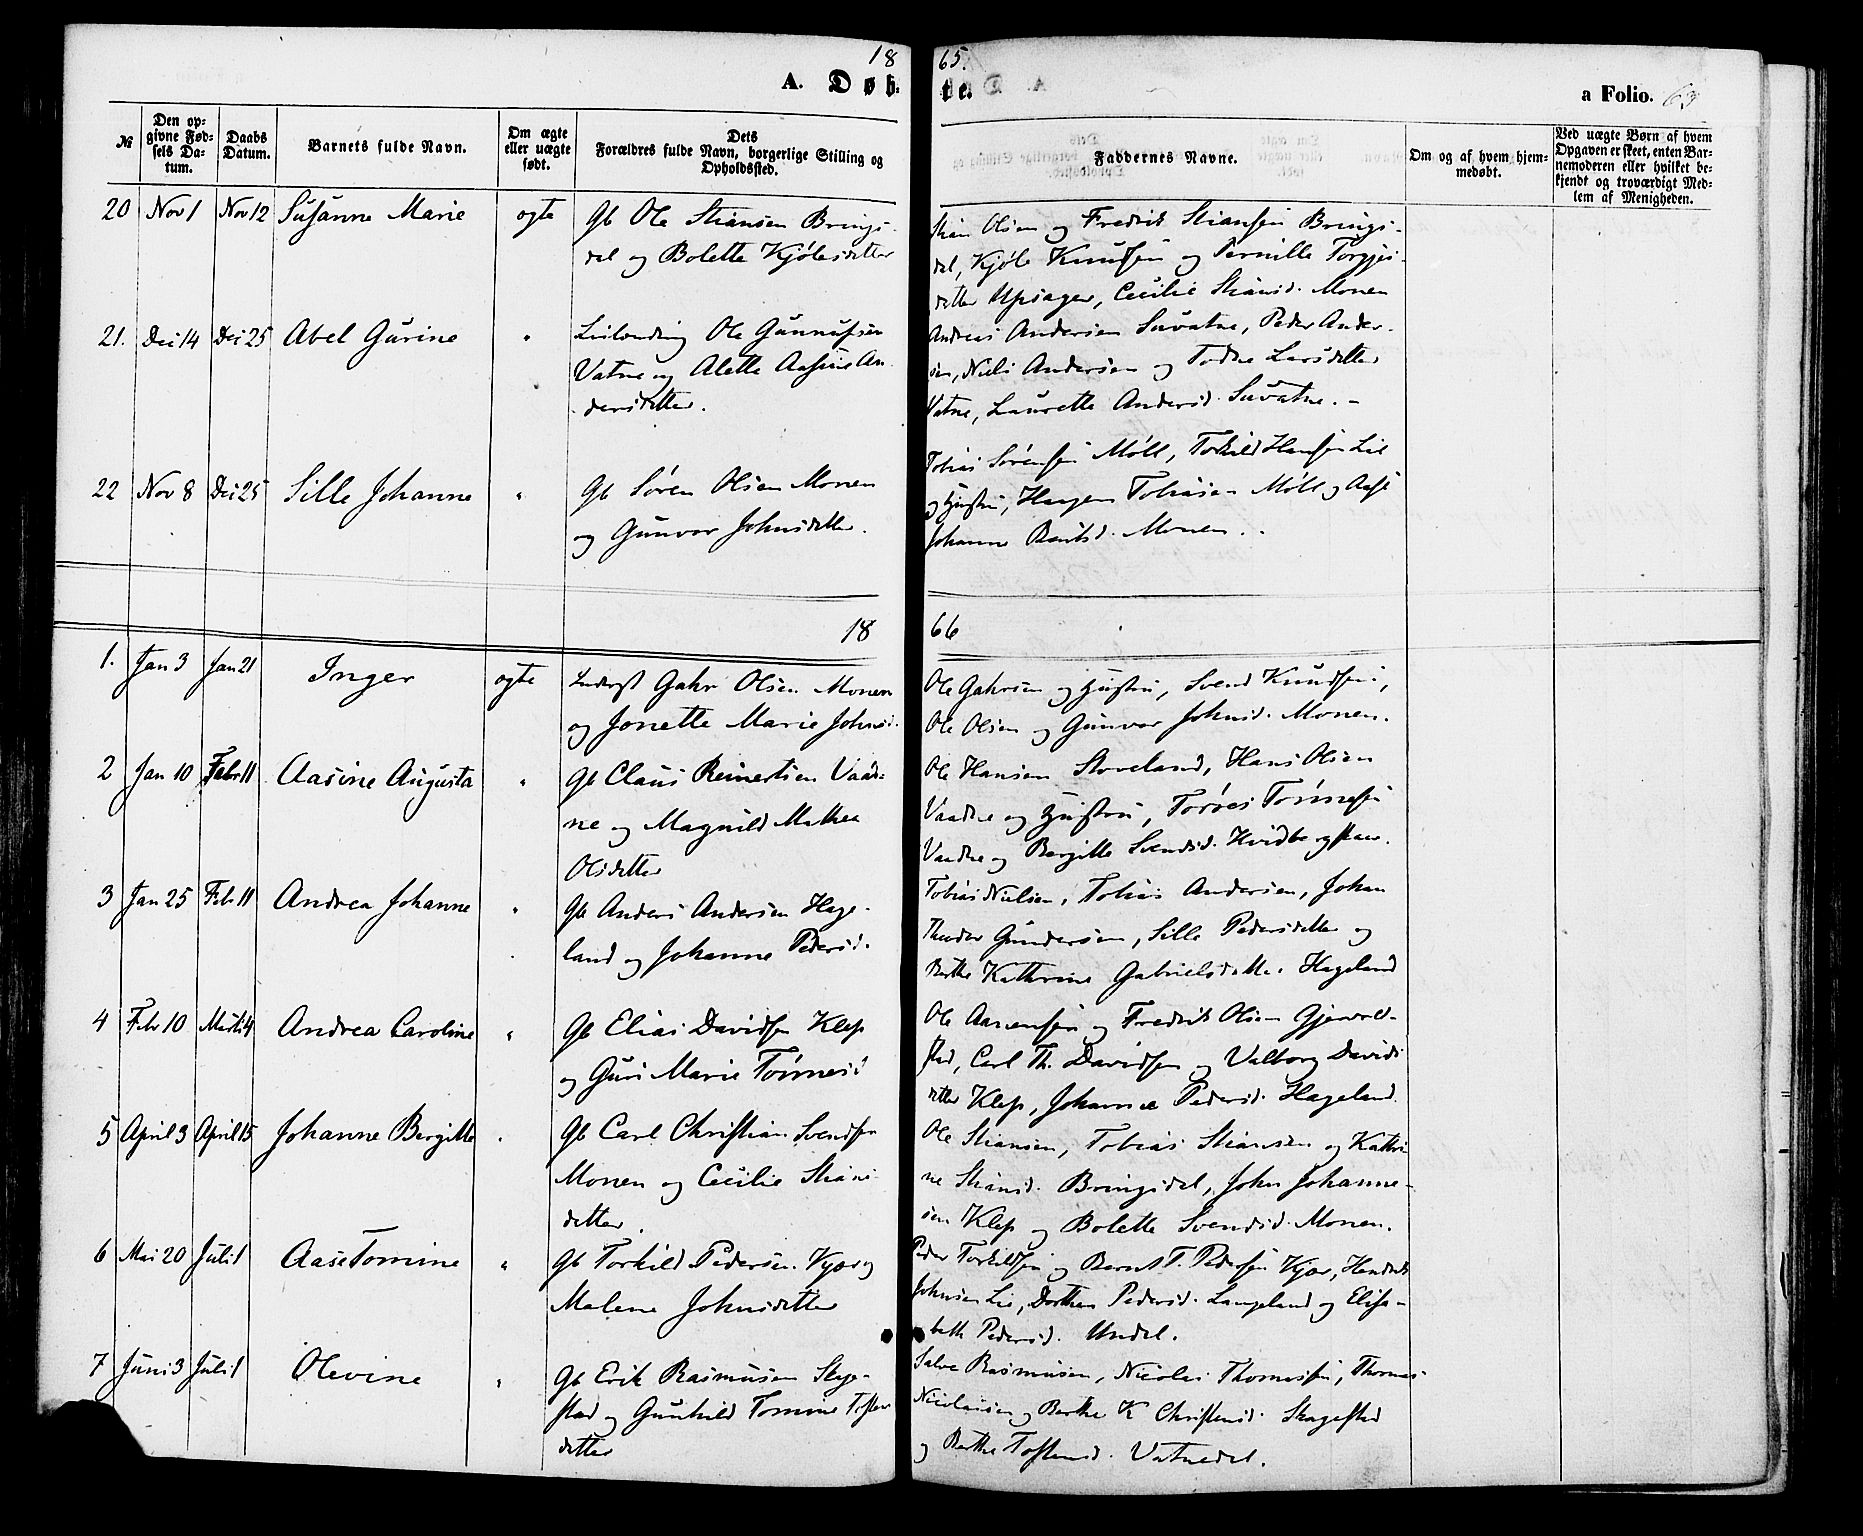 1865.
A. Døbte.
a Folio. 63
№
Den op-
givne Fød-
sels Da-
tum.
Daabs
Datum.
Barnets fulde Navn.
Om ægte
eller uægte
født.
Dets
Forældres fulde Navn, borgerlige Stilling og
Opholdssted.
Faddernes Navne.
Om og af hvem hjem-
medøbt.
Ved uægte Børn af hvem
Opgaven er skeet, enten Bar-
nemoderen eller hvilket be-
kjendt og troværdigt Med-
lem af Menigheden.
20 Nov 1 Nov 12 Susanne Marie ogte
Gb Ole Stiansen Brings-
dal og Bolette Kjølesdetter
Stian Olsen og Fredrik Stiansen Brings-
dal, Kjøle Knutsen og Pernille Torgjes-
detter Upsager, Cecilie Stiansd. Monen
21. Dec 14 Dec 25 Abel Gurine "
Leilending Ole Gunnufsen
Vatne og Alette Aasine An-
dersdetter.
Andreas Andersen Suvatne, Peder Ander-
sen, Niels Andersen og Todne Larsdetter
Vatne, Laurette Andersd. Suvatne. -
22 Nov 8 Dec 25 Sille Johanne "
Gb Søren Olsen Monen
og Gunvor Johnsdetter.
Tobias Sørensen Møll, Torkild Hansen Lie
og Hustru, Haagen Tobiasen Møll og Aase
Johanne Berntsd. Monen.
1866
1. Jan 3 Jan 21 Inger ogte
Inderst Gahr Olsen Monen
og Jonette Marie Johnsd.
Ole Gahrsen og Hustru, Svend Knudsen,
Ole Olsen og Gunvor Johnsd. Monen.
2 Jan 10 Febr 11 Aasine Augusta "
Gb Claus Reinertsen Vaad-
ne og Magnild Mathea
Olsdetter
Ole Hansen Stoveland, Hans Olsen
Vaadne og Hustru, Torres Tønnesen
Vaadne og Bergitte Svendsd. Hvidbergskaar.
3 Jan 25 Febr 11 Andrea Johanne "
Gb Anders Andersen Hage-
land og Johanne Pedersd.
Tobias Nielsen, Tobias Andersen, Johan
Theodor Gundersen, Sille Pedersdetter og
Berthe Kathrine Gabrielsdatter Hageland
4 Febr 10 Marts 4 Andrea Caroline "
Gb Elias Davidsen Klep
og Guri Marie Tønnesd
Ole Aanensen og Fredrik Olsen Gjervold-
stad, Carl Th. Davidsen og Valborg Davids
detter Klep, Johanne Pedersd. Hageland.
5 April 3 April 15 Johanne Bergitte "
Gb Carl Christian Svendsen
Monen og Cecilie Stians-
detter.
Ole Stiansen, Tobias Stiansen og Kathri-
ne Stiansd. Bringsdal, John Johanne-
sen Klep og Bolette Svendsd. Monen.
6 Mai 20 Juli 1 Aase Tomine "
Gb Torkild Pedersen Kjær og
Malene Johnsdetter
Peder Torkildsen og Bernt T. Pedersen Kjær, Hendrik
Johnsen Lie, Dorthea Pedersd. Langeland og Elisa-
beth Pedersd. Undal.
7 Juni 3 Juli 1 Olevine "
Gb Erik Rasmusen Skge-
stad og Gunhild Tomine Tosten
detter
Salve Rasmusen, Nicolai Thomassen, Thomas
Nicolaisen og Berthe K Christensd. Skagestad
og Berthe Tostensd. Vatnedal.